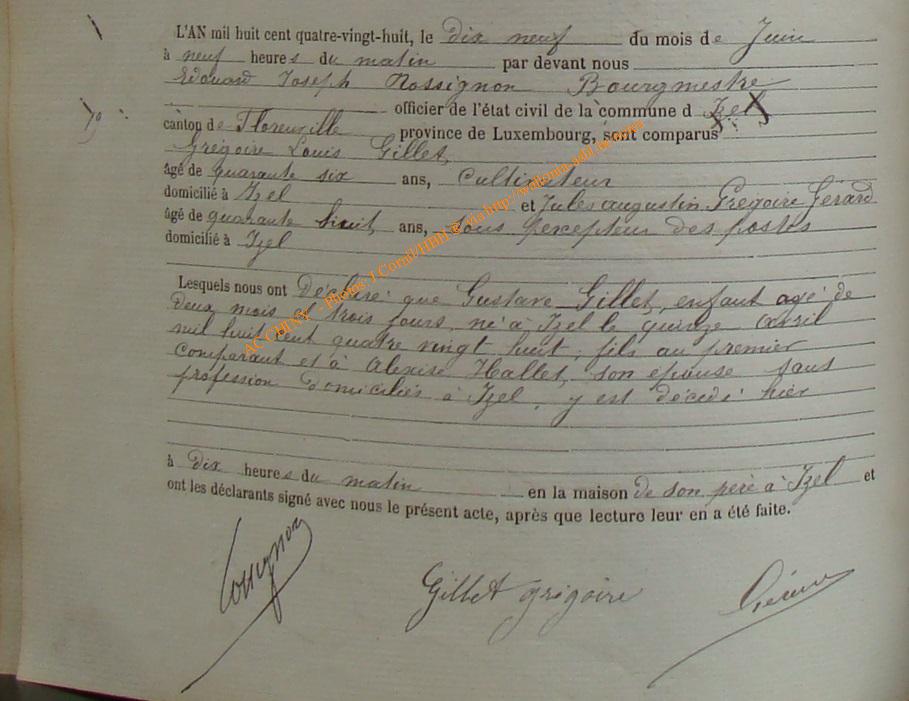 L'AN mil huit cent quatre-vingt-huit, le dix neuf du mois de Juin
à neuf heures du matin par devant nous
Edouard Joseph Rossignon Bourgmestre
officier de l'état civil de la commune d Izel
canton de Florenville province de Luxembourg, sont comparus
Grégoire Louis Gillet,
âgé de quarante six ans, Cultivateur
domicilié à Izel et Jules augustin Grégoire Gérard
âgé de quarante huit ans, sous percepteur des postes
domicilié à Izel
Lesquels nous ont déclaré que Gustave Gillet, enfant agé de
deux mois et trois jours, né à Izel le quinze avril
mil huit cent quatre vingt huit, fils au premier
comparant et à Alexise Hallet, son épouse sans
profession domiciliés à Izel, y est décédé hier
à dix heures du matin en la maison de son père à Izel et
ont les déclarants signé avec nous le présent acte, après que lecture leur en a été faite.
Rossignon Gillet Grégoire Gérard
AC CHINY - Photos J.Corail/HHH @ via http://walloma.adil.